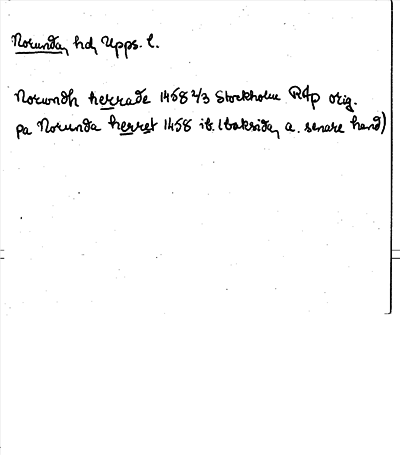 Norunda, hd, Upps. l.
Norundh herrade 1458 2/3 Stockholm RAp orig.
pa Norunda herret 1458 ib. (baksidan, a. senare hand)